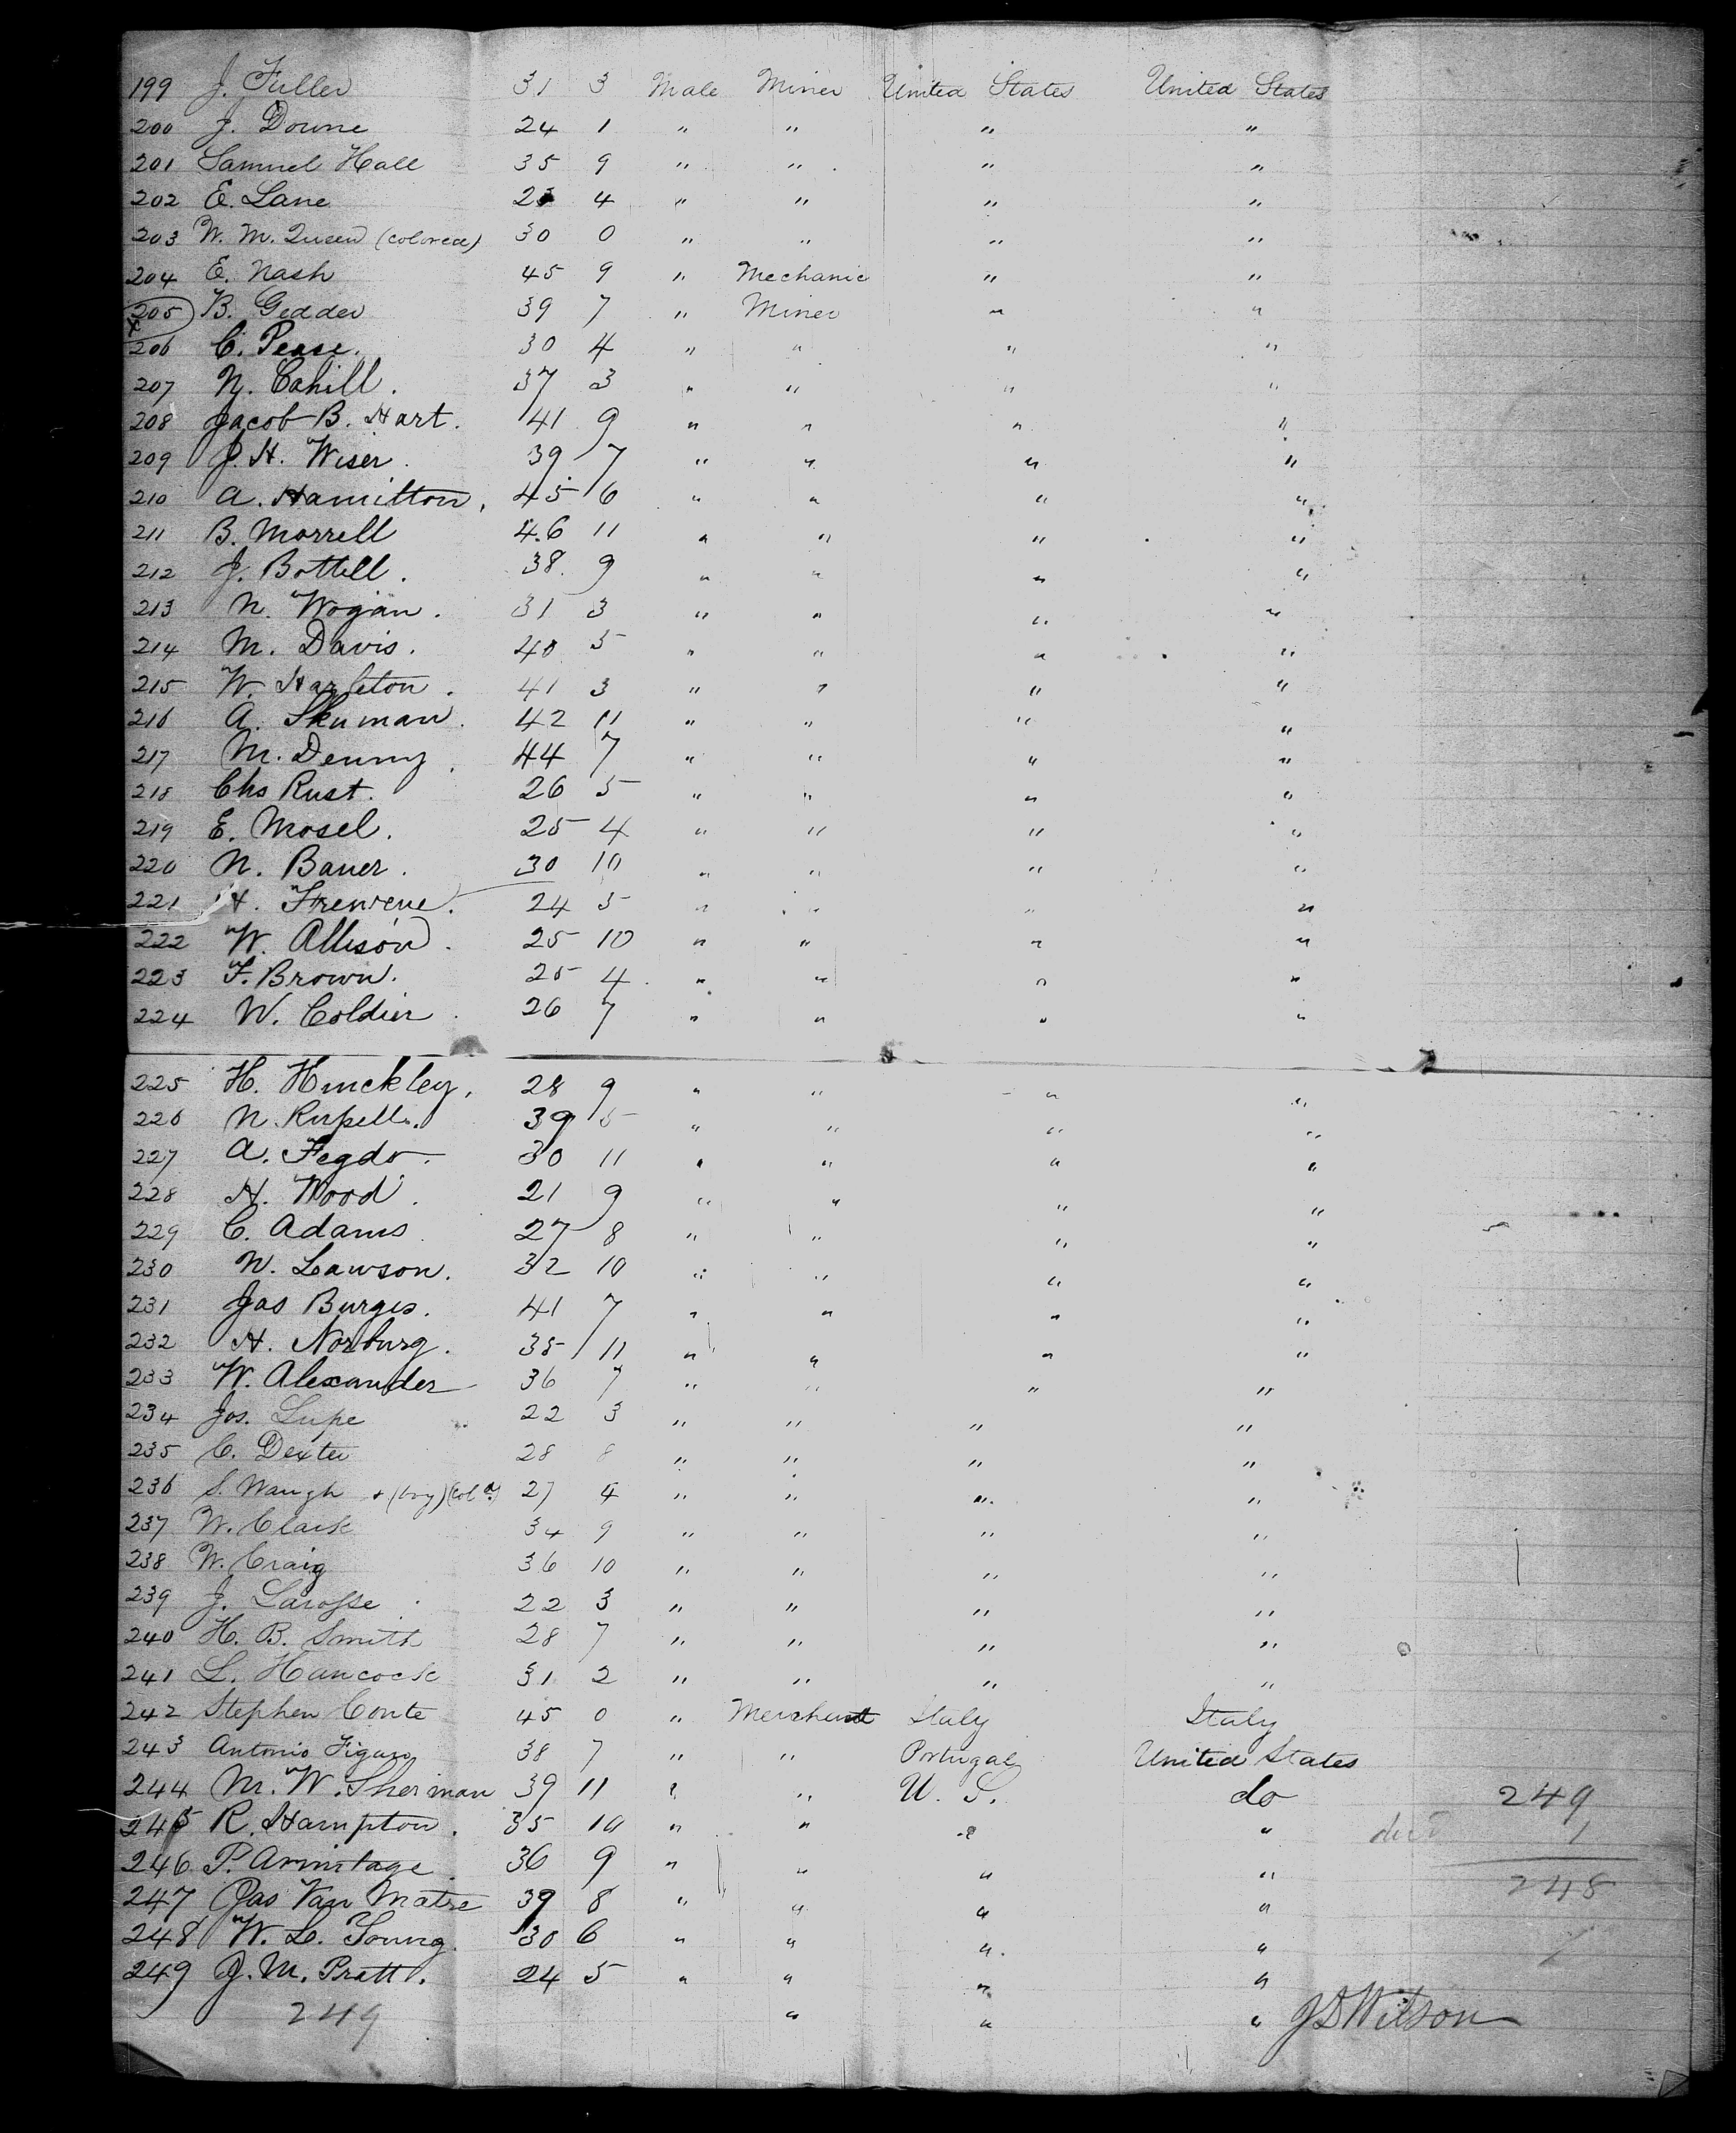 199 J. Fuller 31 3 Male Miner United States United States
200 J. Downe 24 1 " " " "
201 Samuel Hall 35 9 " " " "
202 E. Lane 4 " " " "
203 W. M. Queen (colored) 30 0 " " " "
204 E. Nash 45 9 " Mechanic " "
205 B. Gedder 39 7 " Miner " "
x
206 C. Pease. 30 4 " " " "
207 N. Cahill. 37 3 " " " "
208 Jacob B. Hart. 41 9 " " " "
209 J. H. Wiser. 39 7 " " " "
210 A. Hamilton, 45 6 " " " "
211 B. Morrell 46 11 " " " "
212 J. Bottell. 38 9 " " " "
213 N. Wogan. 31 3 " " " "
214 M. Davis. 40 5 " " " "
215 W. Hazleton. 41 3 " " " "
216 A. Shuman. 42 11 " " " "
217 M. Denny. 44 7 " " " "
218 Chs Rust. 26 5 " " " "
219 E. Mosel. 25 4 " " " "
220 N. Bauer. 30 10 " " " "
221 H. 24 5 " " " "
222 W. Allison. 25 10 " " " "
223 F. Brown. 25 4 " " " "
224 W. Coldier. 26 7 " " " "
225 H. Hinckley, 28 9 " " " "
226 N. Russell. 39 5 " " " "
227 A. Fegdo. 30 11 " " " "
228 H. Wood. 21 9 " " " "
229 C. Adams. 27 8 " " " "
230 W. Lawson. 32 10 " " " "
231 Jas Burges. 41 7 " " " "
232 H. Norburg. 35 11 " " " "
233 W. Alexander 36 7 " " " "
234 Jos. Lupe 22 3 " " " "
235 C. Dexter 28 8 " " " "
236 S. Waugh + (boy) (Cold) 27 4 " " " "
237 W. Clark 34 9 " " " "
238 W. Craig 36 10 " " " "
239 J. Larosse 22 3 " " " "
240 H. B. Smith 28 7 " " " "
241 L. Hancock 31 2 " " " "
242 Stephen Conte 45 0 " Merchant Italy Italy
243 Antonio Figaro 38 7 " " Portugal United States
244 M. W. Sherman 39 11 " " U. S. do 249
245 R. Hampton. 35 10 " " " " 1
246 P. Armitage 36 9 " " " " 248
247 Jas Van Matre 39 8 " " " "
248 W. L. Young. 30 6 " " " "
249 J. M. Pratt. 24 5 " " " "
249 " " " J D Wilson